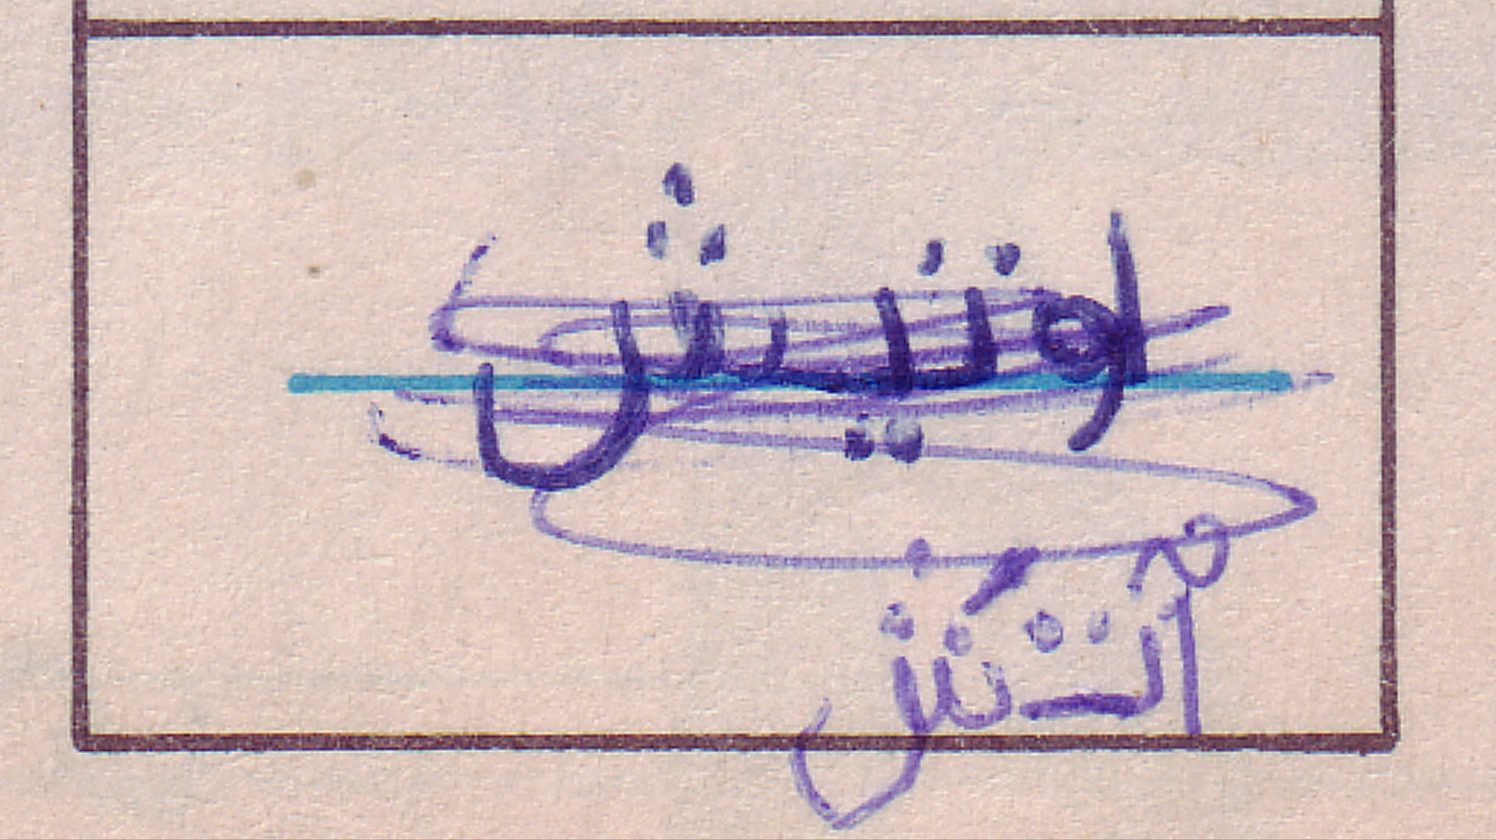 اوتیش
آتَش